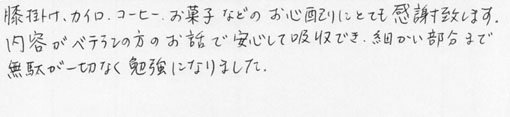 膝掛け、カイロ、コーヒー、お菓子などのお心配りにとても感謝致します。
内容がベテランの方のお話で安心して吸収でき、細かい部分まで
無駄が一切なく勉強になりました。